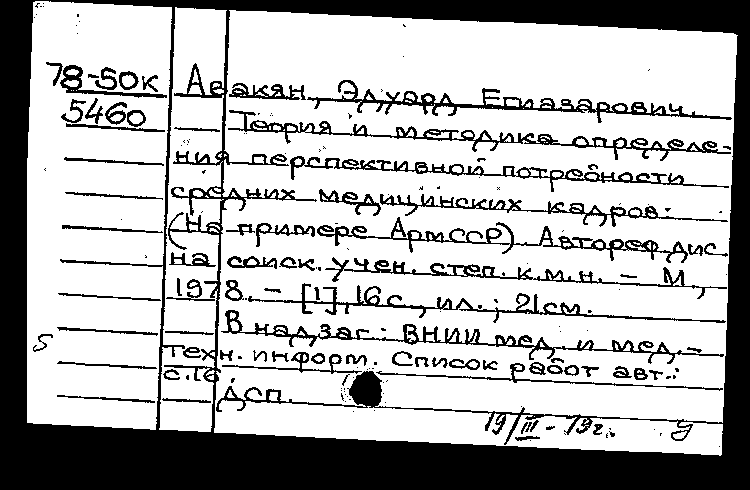 78-50к Авакян, Эдуард Егиазарович.
5460 Теория и методика определе-
ния перспективной потребности
средних медицинских кадров:
(На примере АрмССР) Автореф.дис.
на соиск. учен. степ. к.м.н. – М,
1978. – [1], 16 с., ил.; 21 см.
В надзаг.: ВНИИ мед. и мед.-
техн. информ. Список работ авт.:
с.16
ДСП.
19/III-79г. У